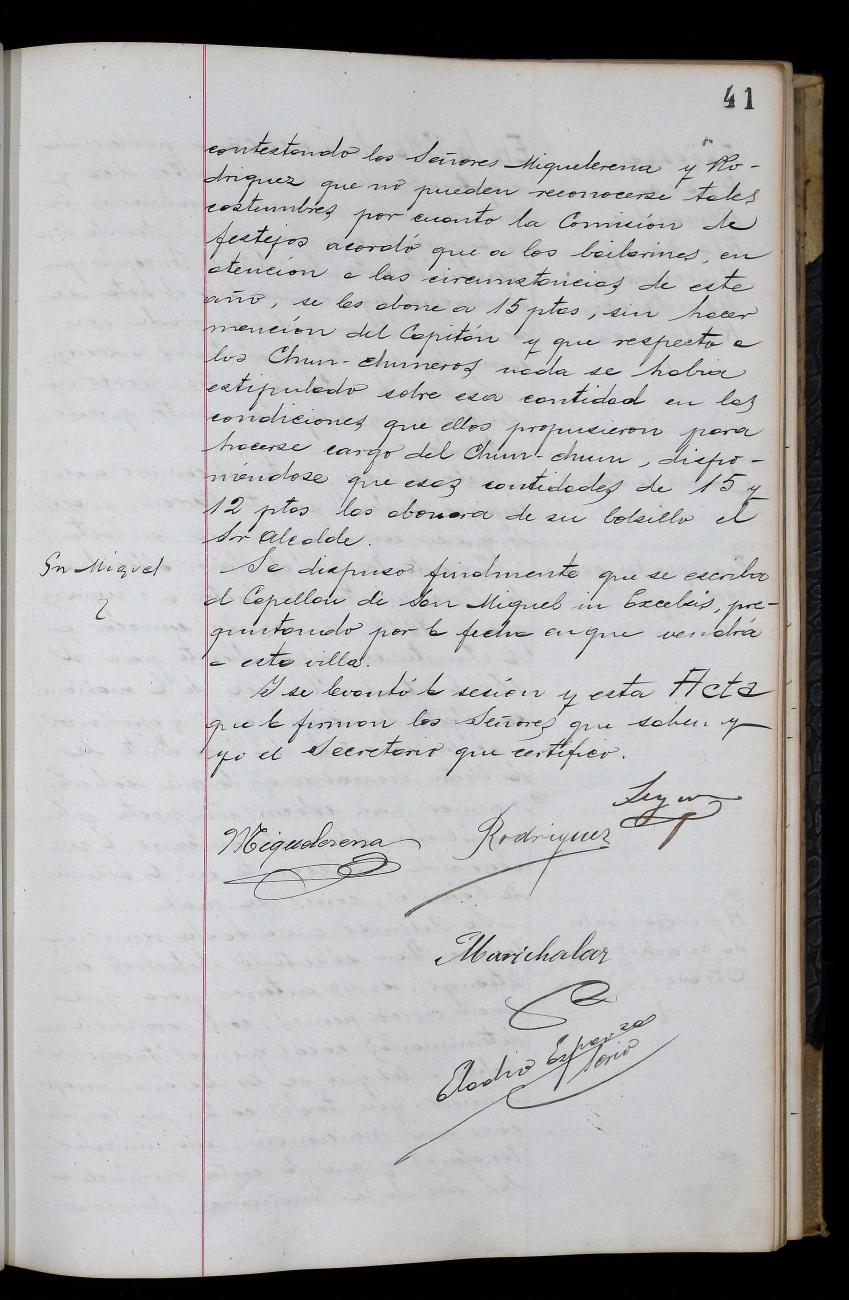 41
contestando los Señores Miquelerena y Ro-
driguez que no pueden reconocerse tales
costumbres por cuanto la Comisión de
festejos acordó que a los bailarines, en
atención a las circunstancias de este
año, se les abone a 15 ptas, sin hacer
mención del Capitán y que respecto a
los Chun-chuneros nada se habia
estipulado sobre esa cantidad en las
condiciones que ellos propusieron para
hacerse cargo del Chun-chun, dispo-
niéndose que esas cantidades de 15 y
12 ptas las abonara de su bolsillo el
Sr Alcalde.
Sn Miguel
Se dispuso finalmente que se escriba
al Capellan de San Miguel in Excelsis, pre-
guntando por la fecha en que vendrá
a esta villa.
Y se levantó la sesión y esta Acta
que la firman los Señores que saben y
yo el Secretario que certifico.
Miquelerena
Rodriguez
Marichalar
Eladio Esparza
Serio